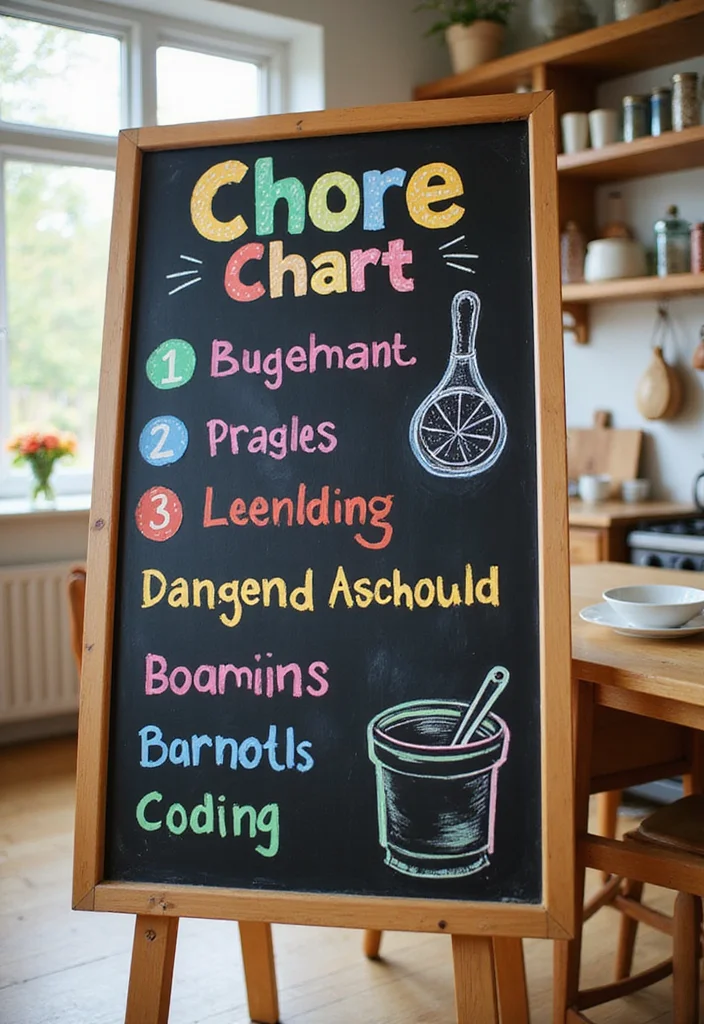 Chore
Chart
1 Bugehmant
2 Pragles
3 Leenlding
Dangend Aschould
Boamiins
Barnotls
Coding